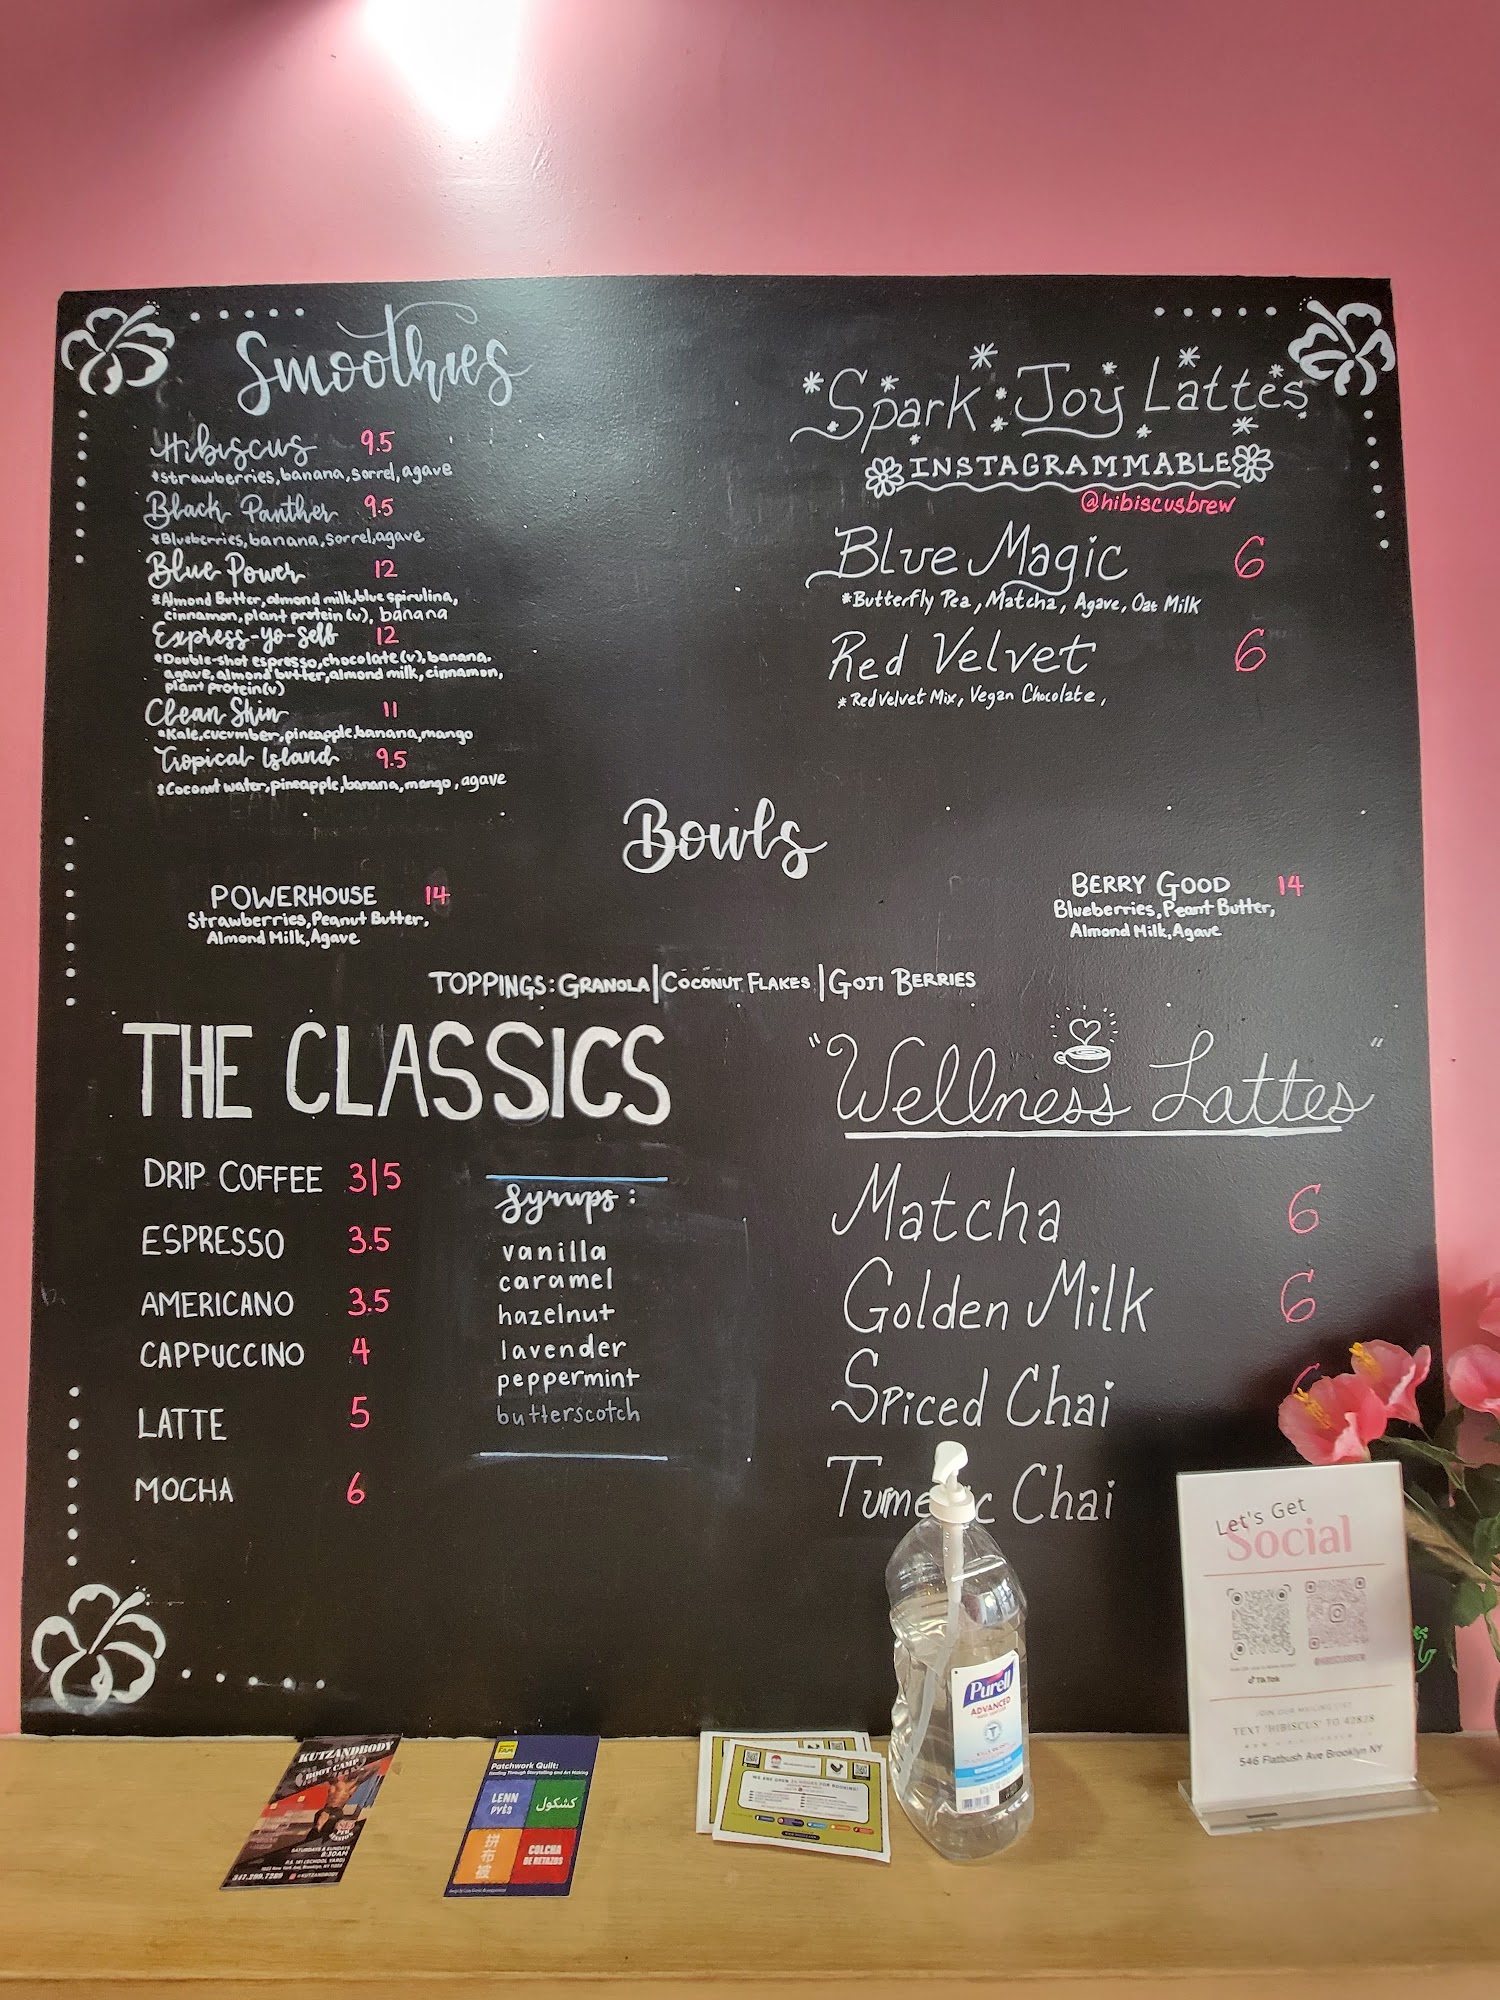 Smoothies
Hibiscus 9.5
*strawberries, banana, sorrel, agave
Black Panther 9.5
*Blueberries, banana, sorrel, agave
Blue Power 12
*Almond Butter, almond milk, blue spirulina,
cinnamon, plant protein (v), banana
Express-yo-self 12
*Double-shot espresso, chocolate (v), banana,
agave, almond butter, almond milk, cinnamon,
plant protein (v)
Clean Skin 11
*Kale, cucumber, pineapple, banana, mango
Tropical Island 9.5
*Coconut water, pineapple, banana, mango, agave
Spark Joy Lattes
INSTAGRAMMABLE
@hibiscusbrew
Blue Magic 6
*Butterfly Pea, Matcha, Agave, Oat Milk
Red Velvet 6
*Red Velvet Mix, Vegan Chocolate,
Bowls
POWERHOUSE 14
Strawberries, Peanut Butter,
Almond Milk, Agave
BERRY GOOD 14
Blueberries, Peant Butter,
Almond Milk, Agave
TOPPINGS: GRANOLA | COCONUT FLAKES | GOJI BERRIES
THE CLASSICS
DRIP COFFEE 3|5
ESPRESSO 3.5
AMERICANO 3.5
CAPPUCCINO 4
LATTE 5
MOCHA 6
Syrups:
vanilla
caramel
hazelnut
lavender
peppermint
butterscotch
"Wellness Lattes"
Matcha 6
Golden Milk 6
Spiced Chai
Chai
Let's Get
Social
TikTok
JOIN OUR MAILING LIST
TEXT 'HIBISCUS' TO 42828
546 Flatbush Ave Brooklyn NY
Purell
ADVANCED
KUTZANDBODY
BOOT CAMP
SATURDAYS & SUNDAYS
8:30AM
347.299.7285
Patchwork Quilt:
Healing Through Storytelling and Art Making
LENN
PYÈS
كشكول
拼布被
COLCHA
DE RETAZOS
WE ARE OPEN 24 HOURS FOR BOOKING!